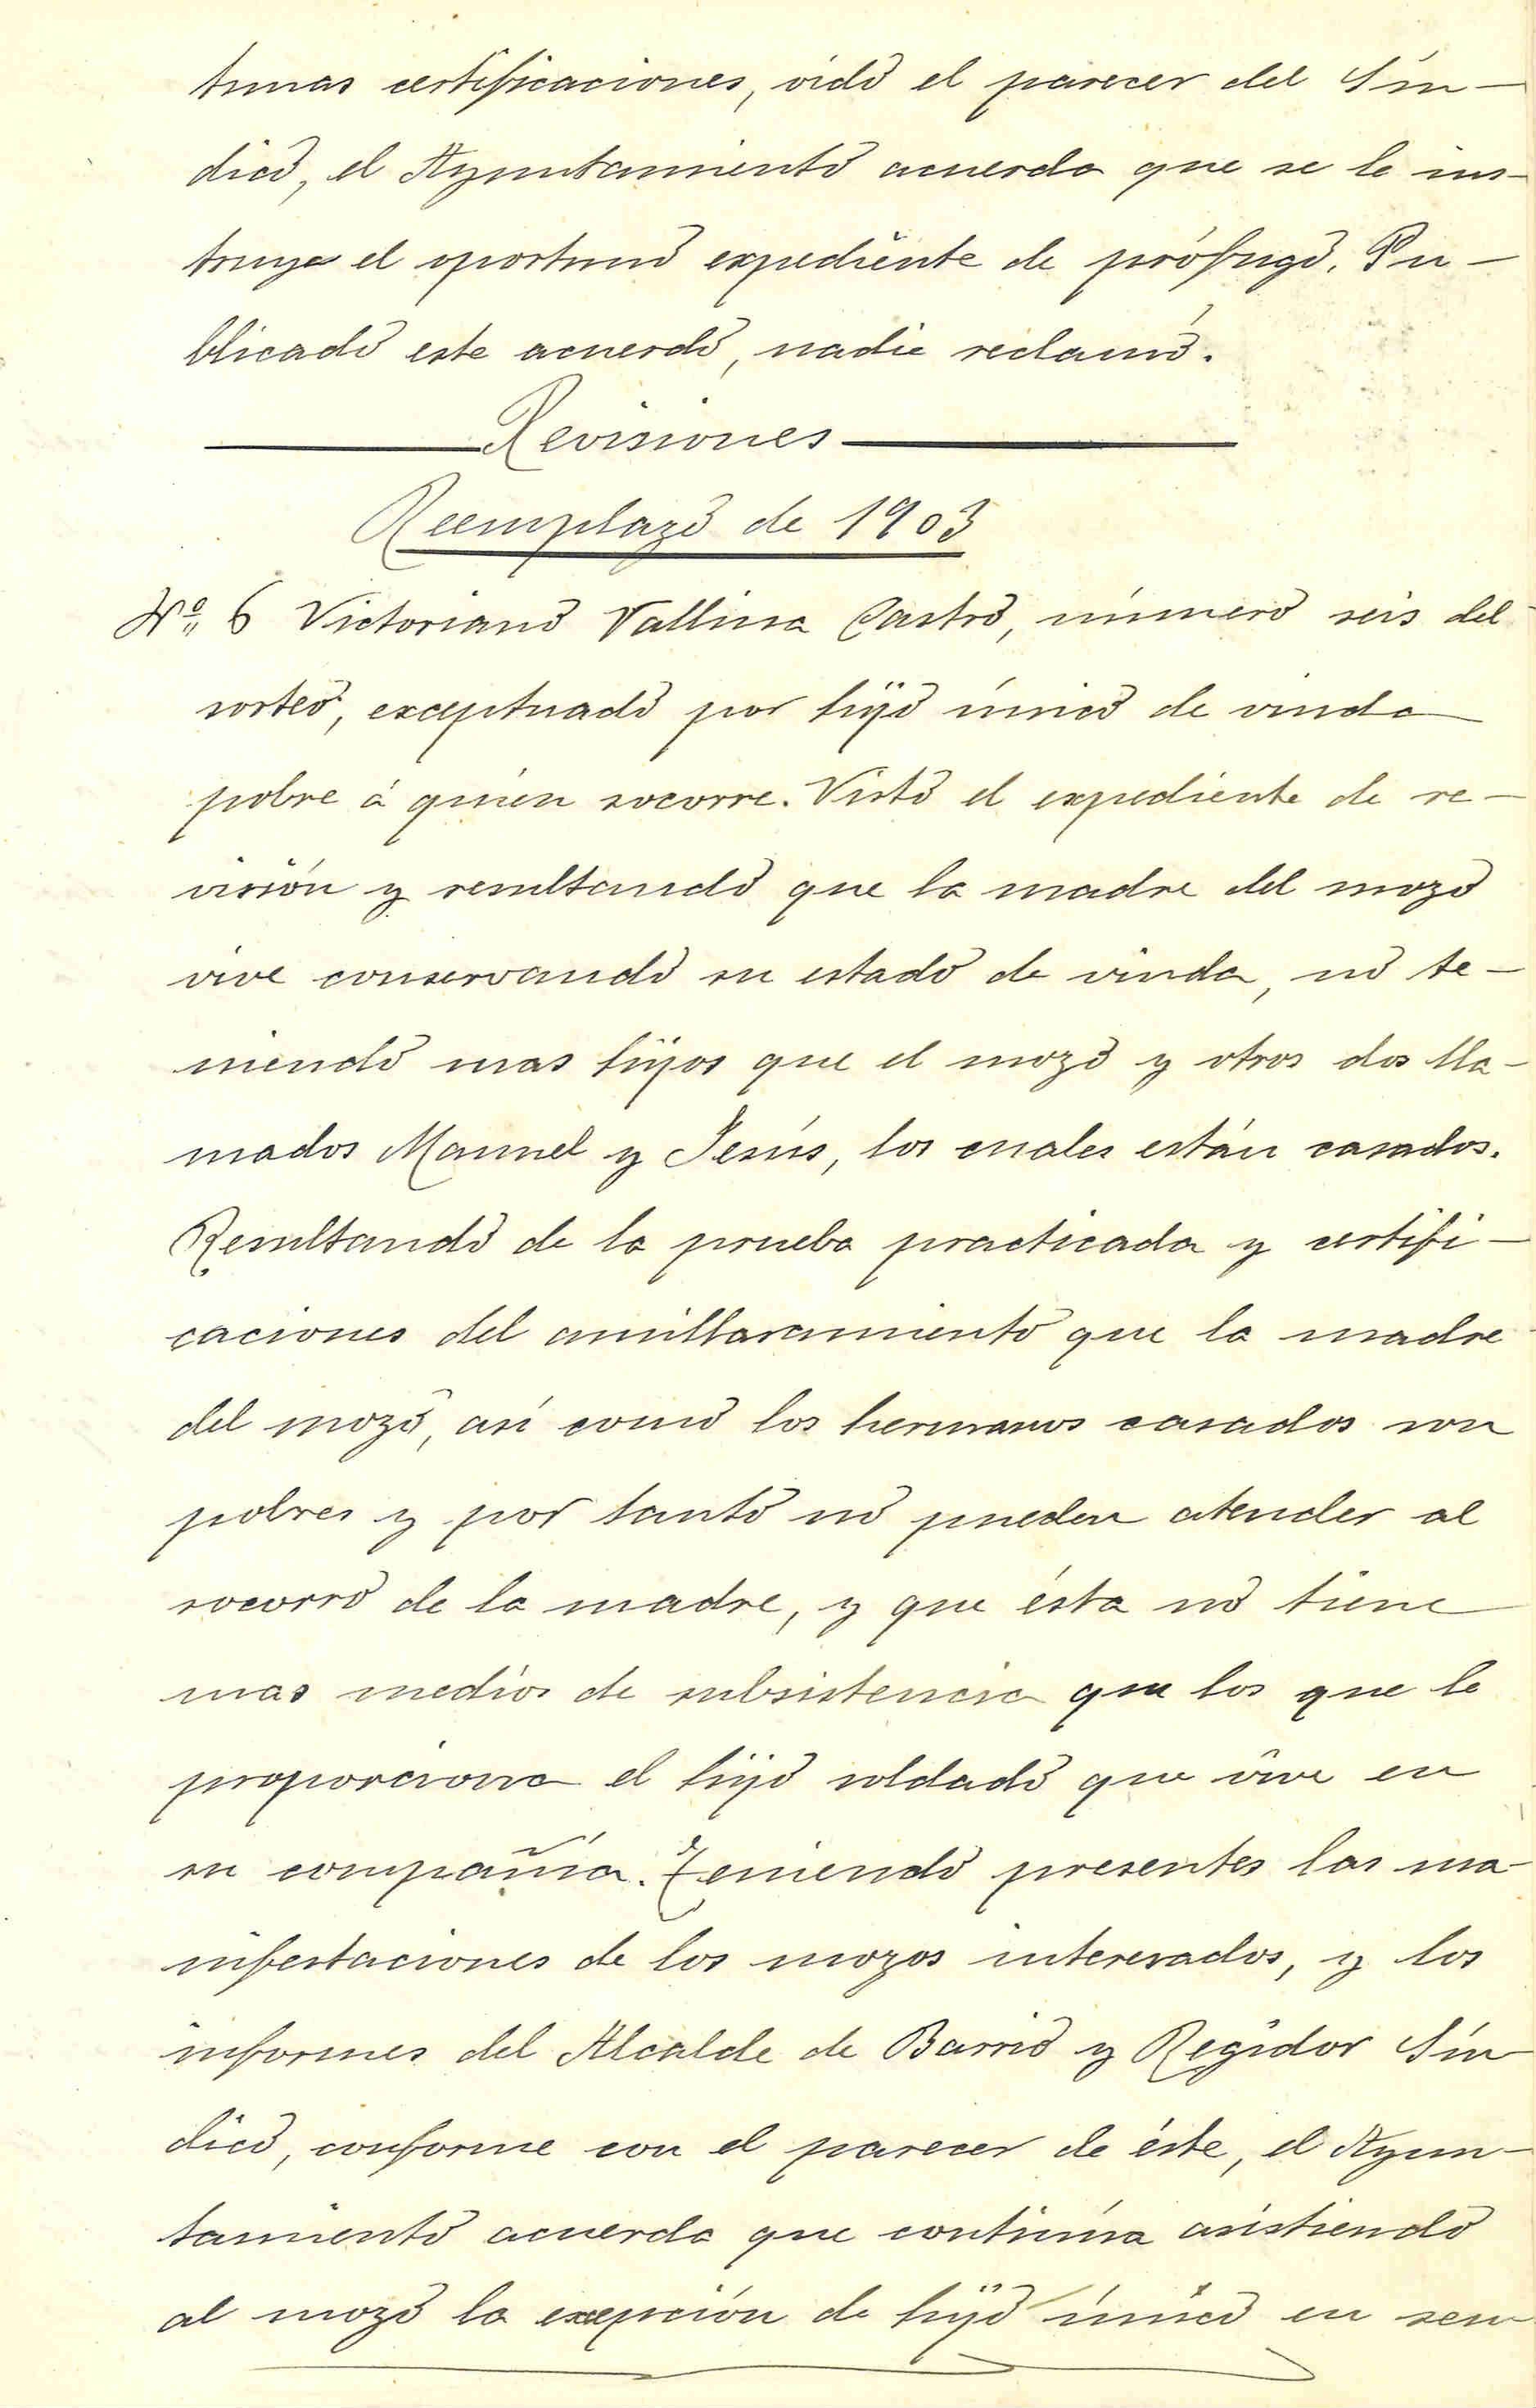 tunas certificaciones, oido el parecer del Sín-
dico, el Ayuntamiento acuerda que se le ins-
truya el oportuno expediente de prófugo. Pu-
blicado este acuerdo, nadie reclamó.
Revisiones
Reemplazo de 1903
Nº. 6 Victoriano Vallina Castro, número seis del
sorteo, exceptuado por hijo único de viuda
pobre á quien socorre. Visto el expediente de re-
visión y resultando que la madre del mozo
vive conservando su estado de viuda, no te-
niendo mas hijos que el mozo y otros dos lla-
mados Manuel y Jesús, los cuales están casados.
Resultando de la prueba practicada y certifi-
caciones del amillaramiento que la madre
del mozo, así como los hermanos casados son
pobres y por tanto no pueden atender al
socorro de la madre, y que ésta no tiene
mas medios de subsistencia que los que le
proporciona el hijo soldado que vive en
su compañía. Teniendo presentes las ma-
nifestaciones de los mozos interesados, y los
informes del Alcalde de Barrio y Regidor Sín-
dico, conforme con el parecer de éste, el Ayun-
tamiento acuerda que continúa asistiendo
al mozo la excepción de hijo único en sen